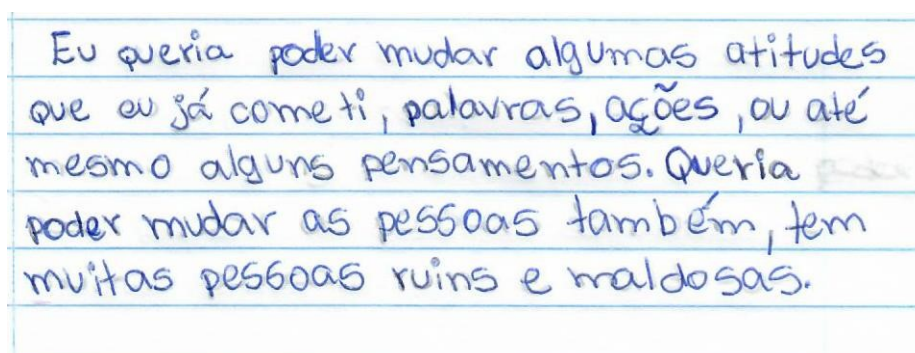 Eu queria poder mudar algumas atitudes
que eu já cometi, palavras, ações, ou até
mesmo alguns pensamentos. Queria
poder mudar as pessoas também, tem
muitas pessoas ruins e maldosas.